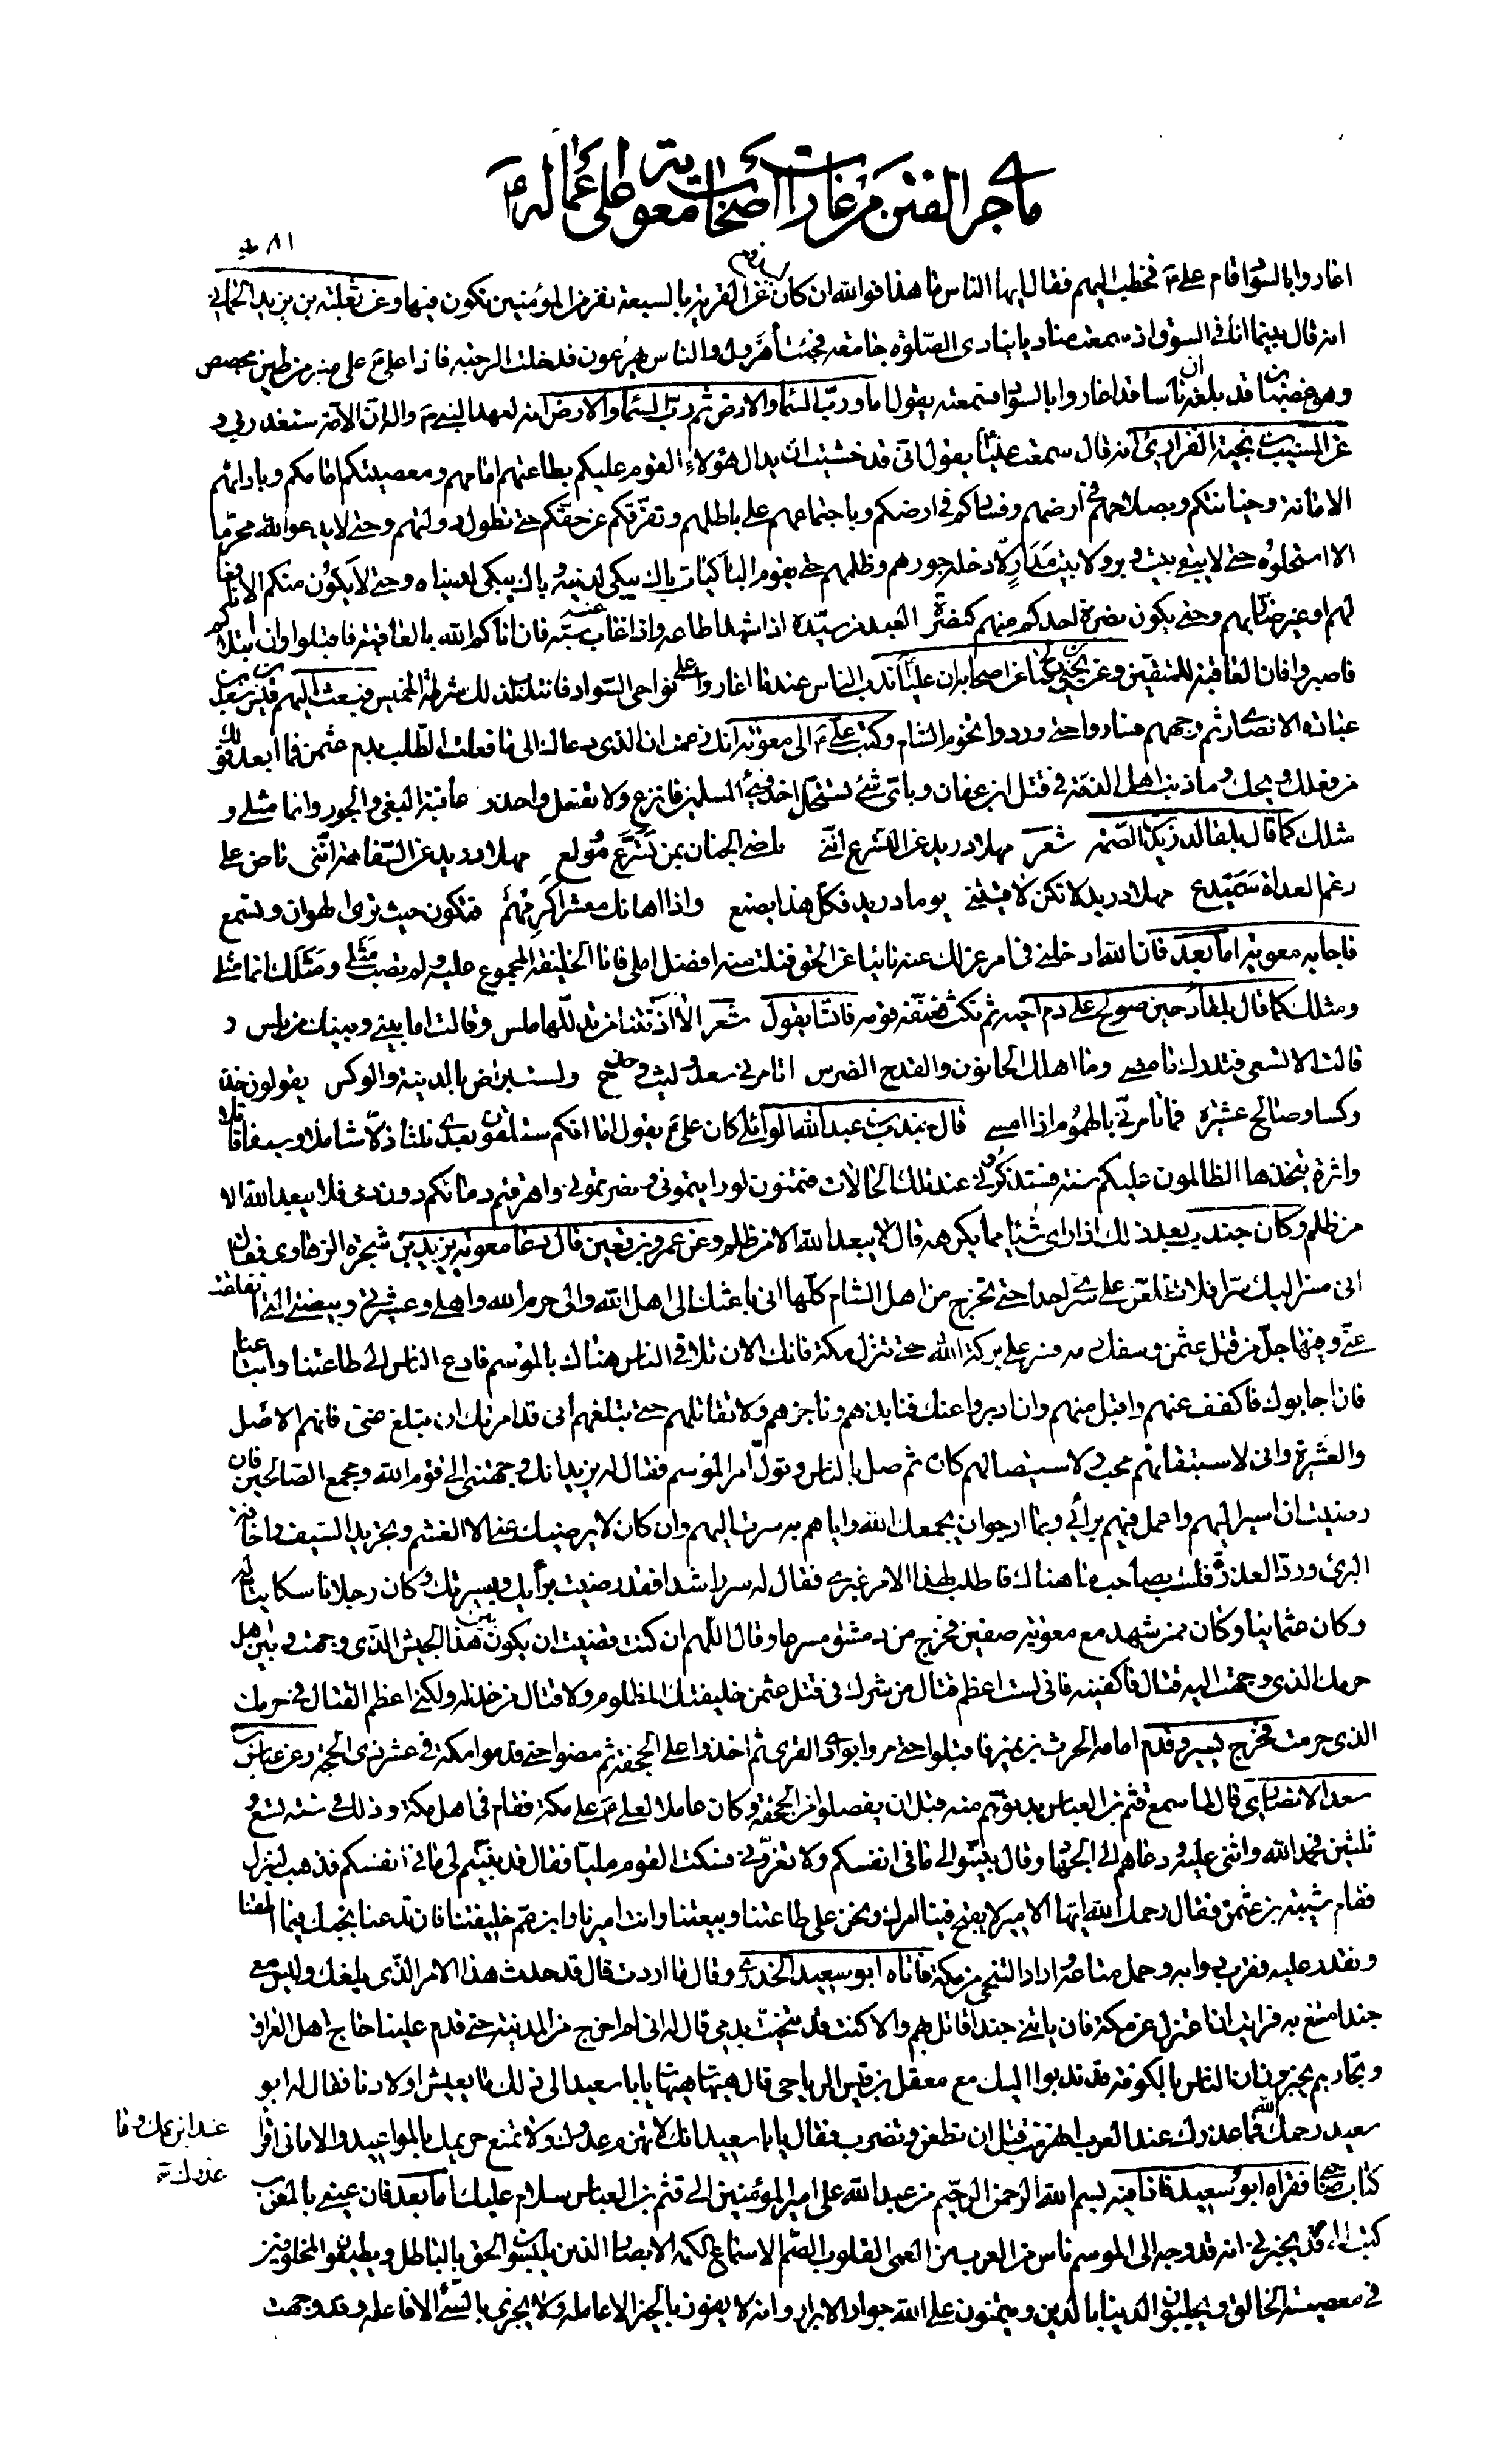 ما جرى الفتن من غارات اصحاب معوية على اعماله ع
٨١
اغاروا بالسواد قام على ع فخطب اليهم فقال ايها الناس ما هذا فوالله ان كان ليدفع عن القرية بالسبعة نفر من المؤمنين تكون فيها وعن ثعلبة بن يزيد الحماني
انه قال بينما انا فى السوق اذ سمعت مناديا ينادى الصلوة جامعة فجئت اهرول والناس يهرعون فدخلت الرحبة فاذا على ع على منبر من طين مجصص
وهو غضبان قد بلغه ان ناسا قد اغاروا بالسواد فسمعته يقول اما ورب السماء والارض ثم رب السماء والارض انه لعهد النبى ص الى ان الامة ستغدر بى و
عن المسيب بن نجية الفزارى انه قال سمعت عليا يقول انى قد خشيت ان يدال هؤلاء القوم عليكم بطاعتهم امامهم ومعصيتكم امامكم وبادائهم
الامانة وخيانتكم وبصلاحهم فى ارضهم وفسادكم فى ارضكم وباجتماعهم على باطلهم وتفرقكم عن حقكم حتى تطول دولتهم وحتى لا يدعوا لله محرما
الا استحلوه حتى لا يبقى بيت وبر ولا بيت مدر الا دخله جورهم وظلمهم حتى يقوم الباكيان باك يبكى لدينه وباك يبكى لدنياه وحتى لا يكون منكم الا نافعا
لهم او غير ضار بهم وحتى يكون نصرة احدكم منهم كنصرة العبد من سيده اذا شهد اطاعه واذا غاب عنه سبه فان اتاكم الله بالعافية فاقبلوا وان ابتلاكم
فاصبروا فان العاقبة للمتقين وعن يحيى بن صالح عن اصحابه ان عليا ندب الناس عندما اغاروا على نواحى السواد فانتدب لذلك شرطة الخميس فبعث اليهم قيس بن سعد بن
عبادة الانصارى ثم وجههم فساروا حتى وردوا تخوم الشام وكتب على ع الى معوية انك زعمت ان الذى دعاك الى ما فعلت الطلب بدم عثمن فما ابعد قولك
من فعلك ويحك وما ذنب اهل الذمة فى قتل ابن عفان وباى شئ تستحل اخذ فئ المسلمين فانزع ولا تفعل واحذر عاقبة البغى والجور وانما مثلى و
مثلك كما قال بلعاء لدريد بن الصمة شعر مهلا دريد عن التسرع اننى ماضى الجنان بمن تسرع مولع مهلا دريد عن السفاهة اننى ماض على
رغم العداة سميدع مهلا دريد لا تكن لاقيتنى يوما دريد فكل هذا يصنع واذا اهانك معشر اكرمتهم فتكون حيث ترى الهوان وتسمع
فاجابه معوية اما بعد فان الله ادخلنى فى امر عزلك عنه نائيا عن الحق فنلت منه افضل املى فانا الخليفة المجموع عليه ولم تصب مثلى ومثلك انما مثلى
ومثلك كما قال بلعاء حين صولح على دم اخيه ثم نكث فعنفه قومه فانشا يقول شعر الا اذنتنا من تدللها ملس وقالت اما بينى وبينك من بلس و
قالت الا تسعى فتدرك ما مضى وما اهلك الحانون والقدح الضرس اتامرنى سعد وليث وجندع ولست براض بالدنية والوكس يقولون خذ
وكسا وصالح عشيرة فما تامرنى بالهموم اذا امسى قال جندب بن عبد الله الوائلى كان على ع يقول اما انكم ستلقون بعدى ثلثا ذلا شاملا وسيفا قاتلا
واثرة يتخذها الظالمون عليكم سنة فستذكرونى عند تلك الحالات فتمنون لو رايتمونى ونصرتمونى واهرقتم دمائكم دون دمى فلا يبعد الله الا
من ظلم وكان جندب بعد ذلك اذا راى شيئا مما يكرهه قال لا يبعد الله الا من ظلم وعن عمرو بن قعين قال دعا معوية يزيد بن شجرة الرهاوى فقال
انى مسر اليك سرا فلا تطلعن على سرى احدا حتى تخرج من اهل الشام كلها انى باعثك الى اهل الله والى حرم الله واهلى وعشيرتى وبيضتى التى انفلقت
عنى وفيها جل من قتل عثمن وسفك دمه فسر على بركة الله حتى تنزل مكة فانك الان تلاقى الناس هناك بالموسم فادع الناس الى طاعتنا واتباعنا
فان اجابوك فاكفف عنهم واقبل منهم وان ادبروا عنك فنابذهم وناجزهم ولا تقاتلهم حتى تبلغهم انى قد امرتك ان تبلغ عنى فانهم الاصل
والعشيرة وانى لاستبقائهم محب ولاستيصالهم كاره ثم صل بالناس وتول امر الموسم فقال له يزيد انك وجهتنى الى قوم الله ومجمع الصالحين فان
رضيت ان اسير اليهم واعمل فيهم برأيى وبما ارجو ان يجمعك الله واياهم به سرت اليهم وان كان لا يرضيك عنى الا الغشم وتجريد السيف واخافة
البرئ ورد العذرة فلست بصاحب ما هناك فاطلب لهذا الامر غيرى فقال له سر راشدا فقد رضيت برأيك وبسيرتك وكان رجلا ناسكا يتاله
وكان عثمانيا وكان ممن شهد مع معوية صفين فخرج من دمشق مسرعا وقال اللهم ان كنت قضيت ان يكون بين هذا الجيش الذى وجهت وبين اهل
حرمك الذى وجهت اليه قتال فاكفنيه فانى لست اعظم قتال من شرك فى قتل عثمن خليفتك المظلوم ولا قتال من خذله ولكنى اعظم القتال فى حرمك
الذى حرمت فخرج يسير وقدم امامه الحرث بن نمير فاقبلوا حتى مروا بوادى القرى ثم اخذوا على الجحفة ثم مضوا حتى قدموا مكة فى عشر ذى الحجة وعن عباس بن
سعد الانصارى قال لما سمع قثم بن العباس بدنوهم منه قبل ان يفصلوا من الجحفة وكان عاملا لعلى ع على مكة فقام فى اهل مكة وذلك فى سنة تسع و
ثلثين فحمد الله واثنى عليه ودعاهم الى الجهاد وقال بينوا لى ما فى انفسكم ولا تغرونى فسكت القوم مليا فقال قد بينتم لى ما فى انفسكم فذهب لينزل
فقام شيبة بن عثمن فقال رحمك الله ايها الامير لا يقبح فينا امرك ونحن على طاعتنا وبيعتنا وانت اميرنا وابن عم خليفتنا فان تدعنا نجبك فيما اطقنا
ونقدر عليه فقرب دوابه وحمل متاعه واراد التنحى من مكة فاتاه ابو سعيد الخدرى وقال ما اردت قال قد حدث هذا الامر الذى بلغك وليس معى
جند امتنع به فرايت ان اعتزل عن مكة فان ياتنى جند اقاتل بهم والا كنت قد تنحيت بدمى قال له انى لم اخرج من المدينة حتى قدم علينا حاج اهل العراق
وتجارهم يخبرون ان الناس بالكوفة قد ندبوا اليك مع معقل بن قيس الرياحى قال هيهات هيهات يابا سعيد الى ذلك ما يعيش اولادنا فقال له ابو
سعيد رحمك الله فما عذرك عند العرب انهزمت قبل ان تطعن وتضرب فقال يابا سعيد انك لا تهزم عدوك ولا تمنع حريمك بالمواعيد والامانى اقرا
عند ابن عمك وما
عذرك
كتاب صاحبى فقراه ابو سعيد فاذا فيه بسم الله الرحمن الرحيم من عبد الله على امير المؤمنين الى قثم بن العباس سلام عليك اما بعد فان عينى بالمغرب
كتب الى يخبرنى انه قد وجه الى الموسم ناس من العرب من العمى القلوب الصم الاسماع الكمه الابصار الذين يلبسون الحق بالباطل ويطيعون المخلوقين
فى معصية الخالق ويجلبون الدنيا بالدين ويتمنون على الله جوار الابرار وانه لا يفوز بالخير الا عامله ولا يجزى بالسئ الا فاعله وقد وجهت